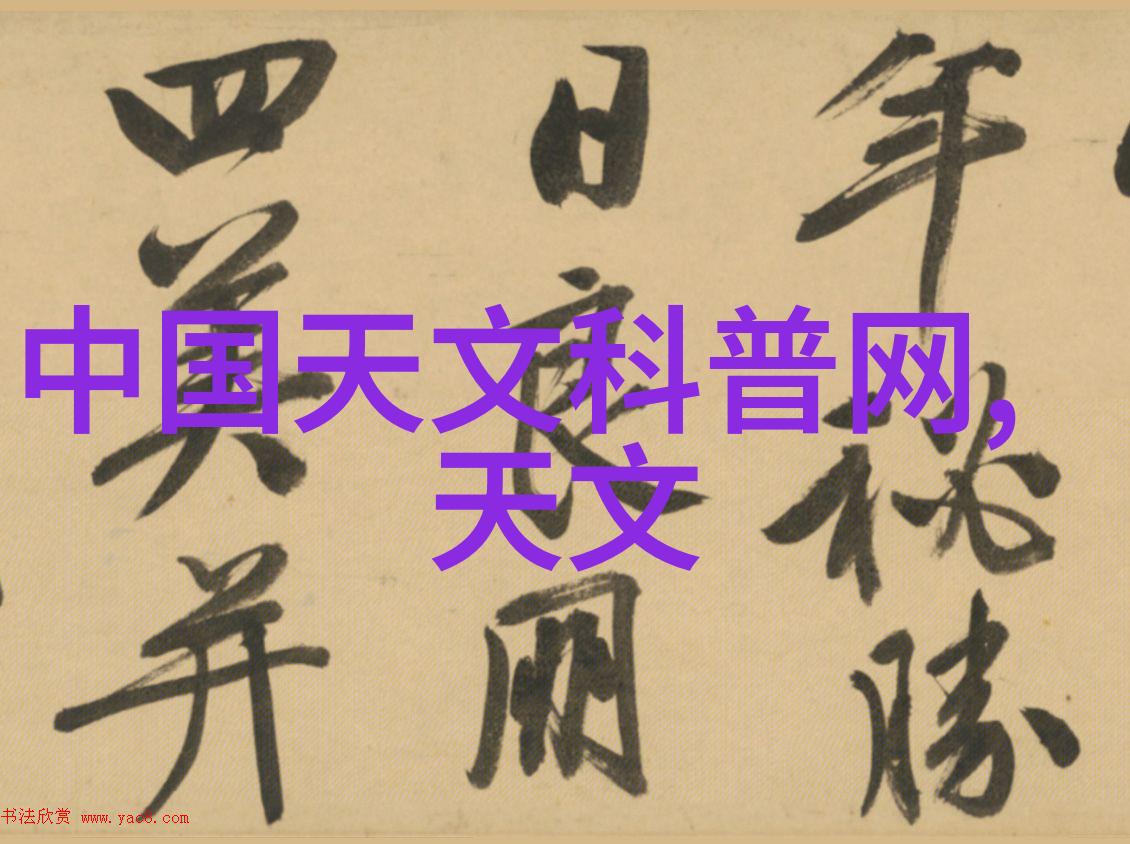 中国天文科普网,
天文
年秘勝
日良朋
四美并
书法欣赏 www.yac8.com